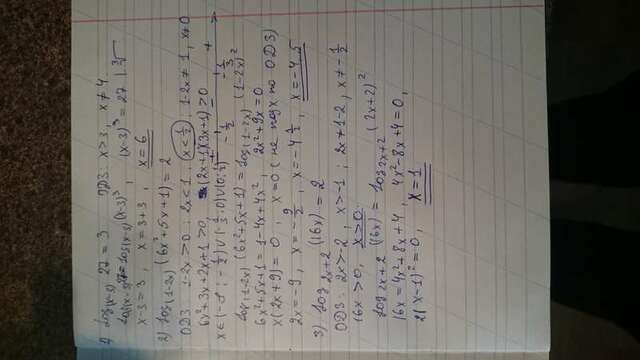 1) log(x-3) 27 = 3   ОДЗ: x>3, x≠4
log(x-3) 27 = log(x-3) (x-3)³ ; (x-3)³ = 27 | ∛
x-3=3 , x=3+3 , x=6
2) log(1-2x) (6x²+5x+1) = 2
ОДЗ: 1-2x>0 ; 2x<1 , x<1/2 ; 1-2x≠1 , x≠0
6x²+3x+2x+1>0 , (2x+1)(3x+1)>0
log(1-2x) (6x²+5x+1) = log(1-2x) (1-2x)²
6x²+5x+1 = 1-4x+4x² , 2x²+9x=0
x(2x+9)=0 , x=0 (не подх по ОДЗ)
2x=-9 , x=-9/2 , x=-4 1/2 , x=-4.5
3) log 2x+2 (16x) = 2
ОДЗ: 2x>-2 , x>-1 ; 2x≠1-2 , x≠-1/2
16x>0 , x>0
log 2x+2 (16x) = log 2x+2 (2x+2)²
16x=4x²+8x+4 , 4x²-8x+4=0,
(x-1)²=0 , x=1